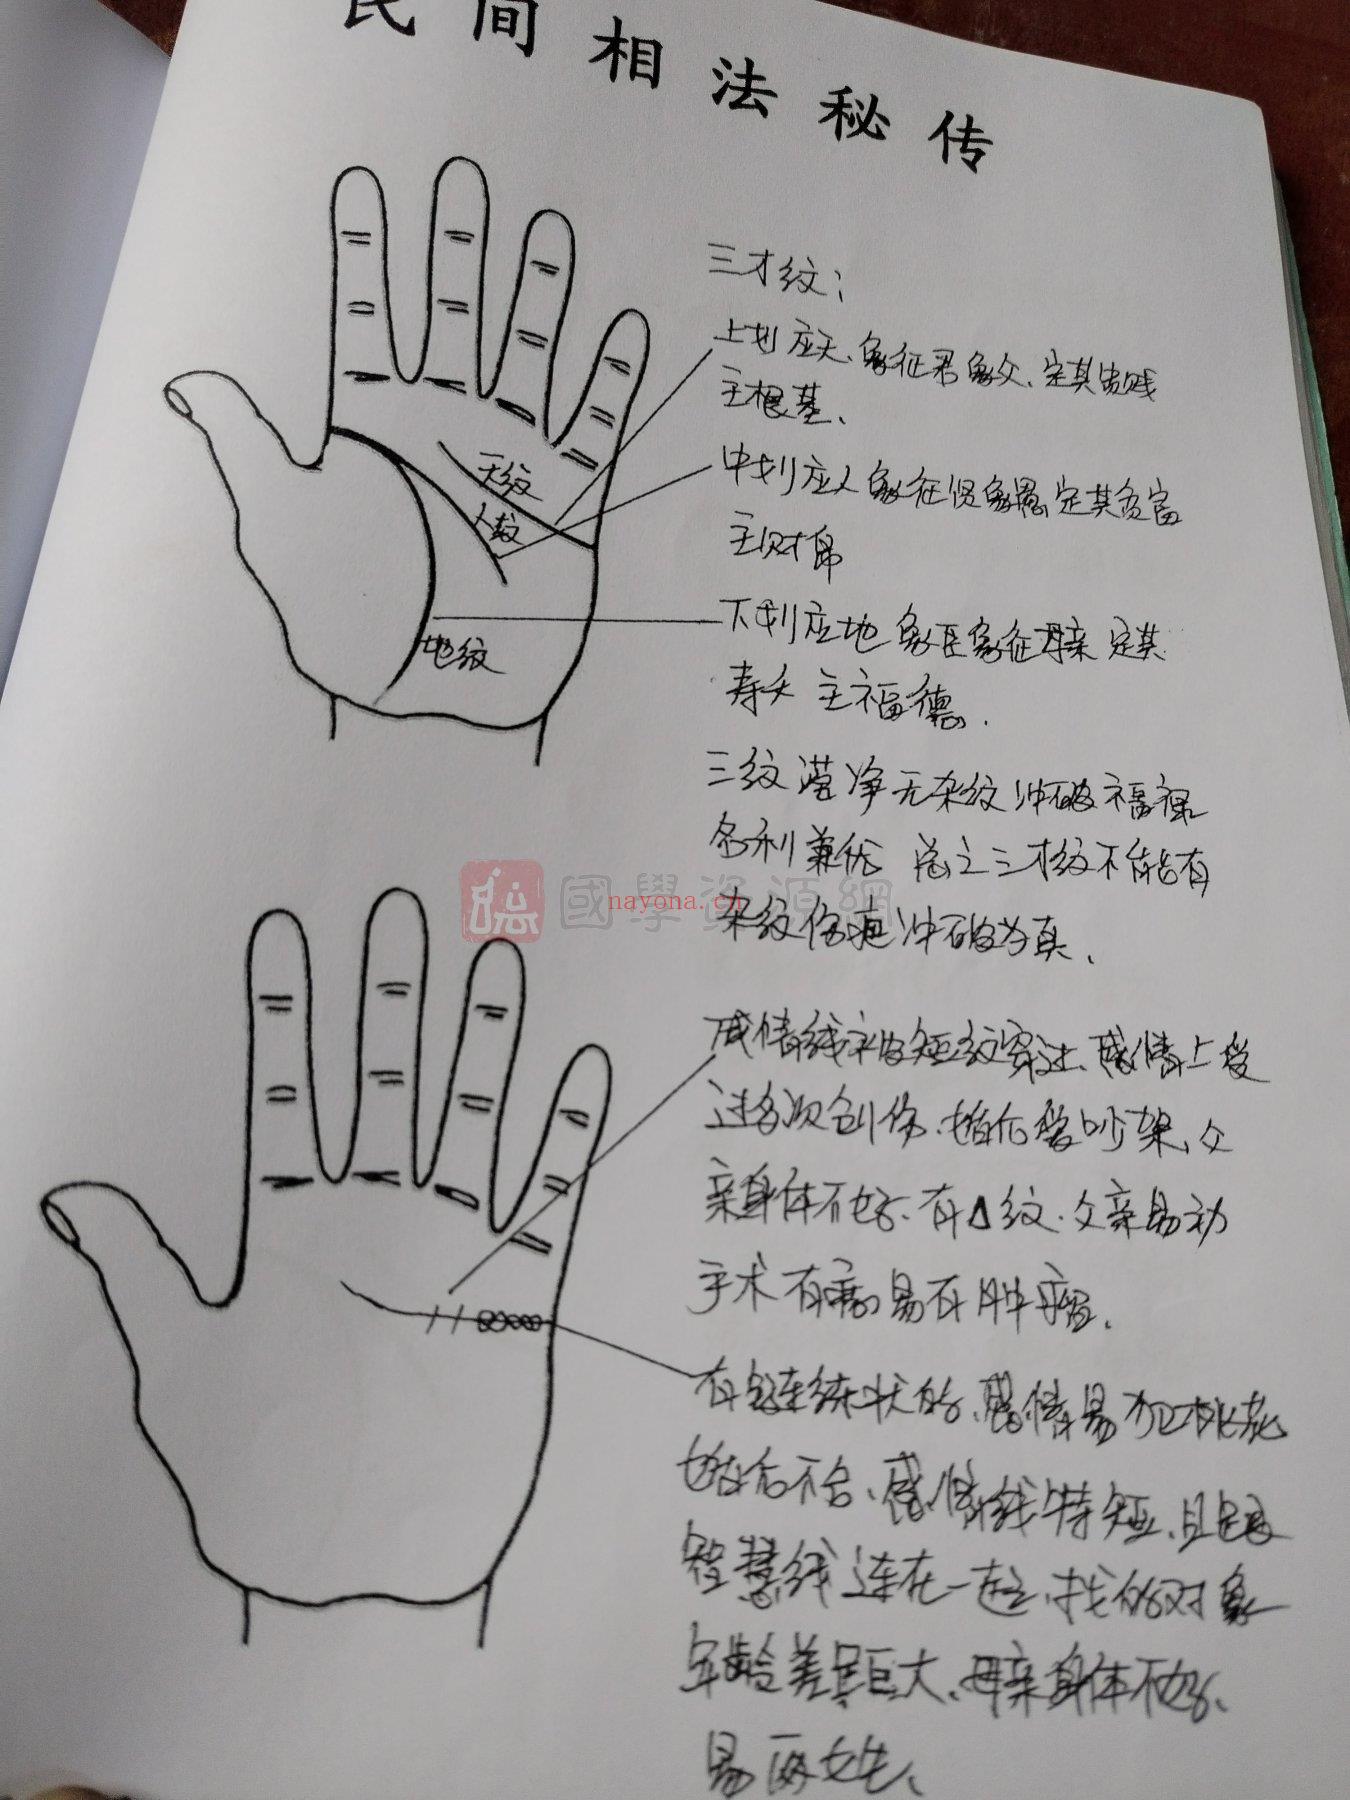 民间相法秘传
三才纹；
上划应天、象征君象父、定其贵贱
主根基、
天纹
人纹
中划应人象征贤象愚定其贫富
主财帛
下划应地象臣象征母亲定其
地纹
寿夭主福德.
三纹莹净无杂纹冲破福禄
名利兼优 总之三才纹不能有
國學資源網
nayona.cn
杂纹伤疤冲破为真、
感情线被短纹穿过、感情上受
过多次创伤、婚后爱吵架、父
亲身体不好、有△纹、父亲易动
手术有病易有肿瘤.
有链状的、感情易犯桃花
婚后不合、感情线特短、且跟
智慧线连在一起、找的对象
年龄差距大、母亲身体不好、
易